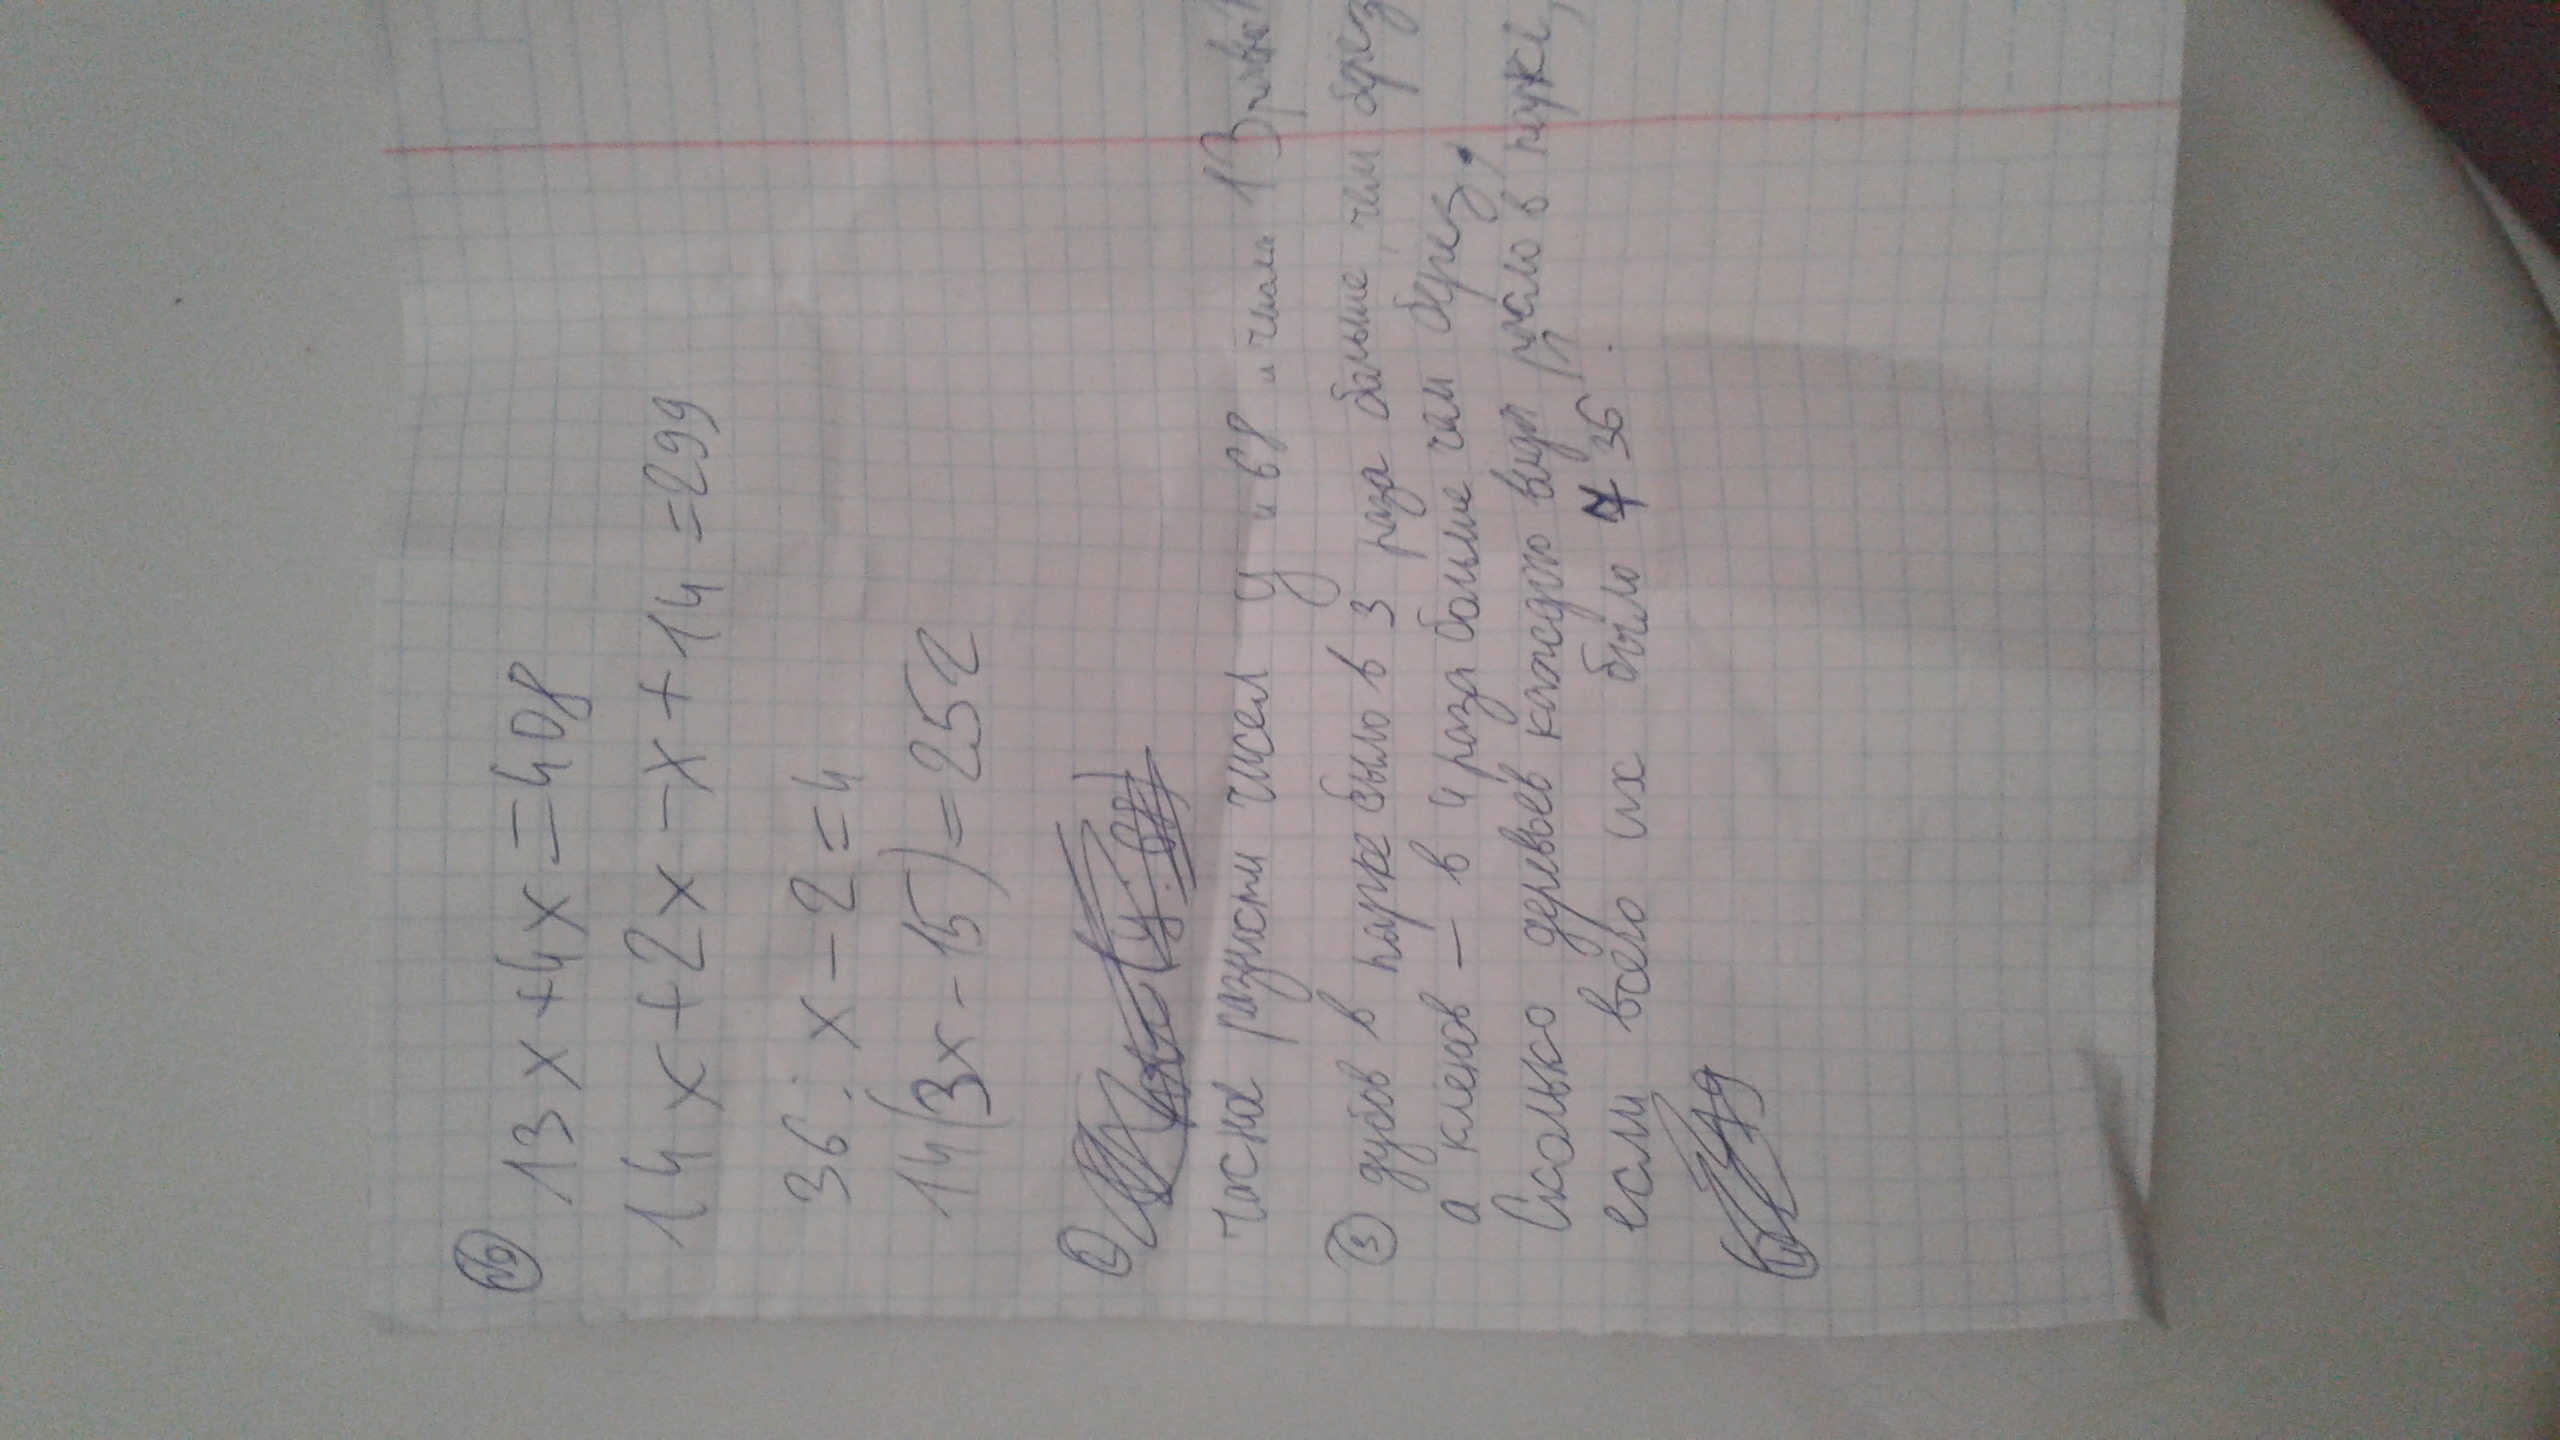 №
13x+4x=408
14x+2x-x+14=299
36:x-2=4
14(3x-15)=252
частн разности чисел y и 68 и числа 13
③ дубов в парке было в 3 раза больше, чем
а кленов — в 4 раза больше чем берез.
Сколько деревьев каждого вида в парке,
если всего их было 736.